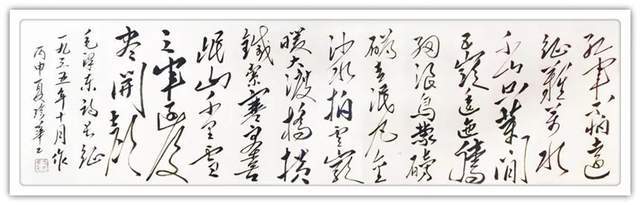 红军不怕遠
征難萬水
千山只等闲
五嶺逶迤騰
细浪烏蒙磅
礴走泥丸金
沙水拍雲崖
暖大渡橋横
鐵索寒更喜
岷山千里雪
三军过後
尽開颜
毛泽东诗长征
一九三五年十月作
丙申夏 華书